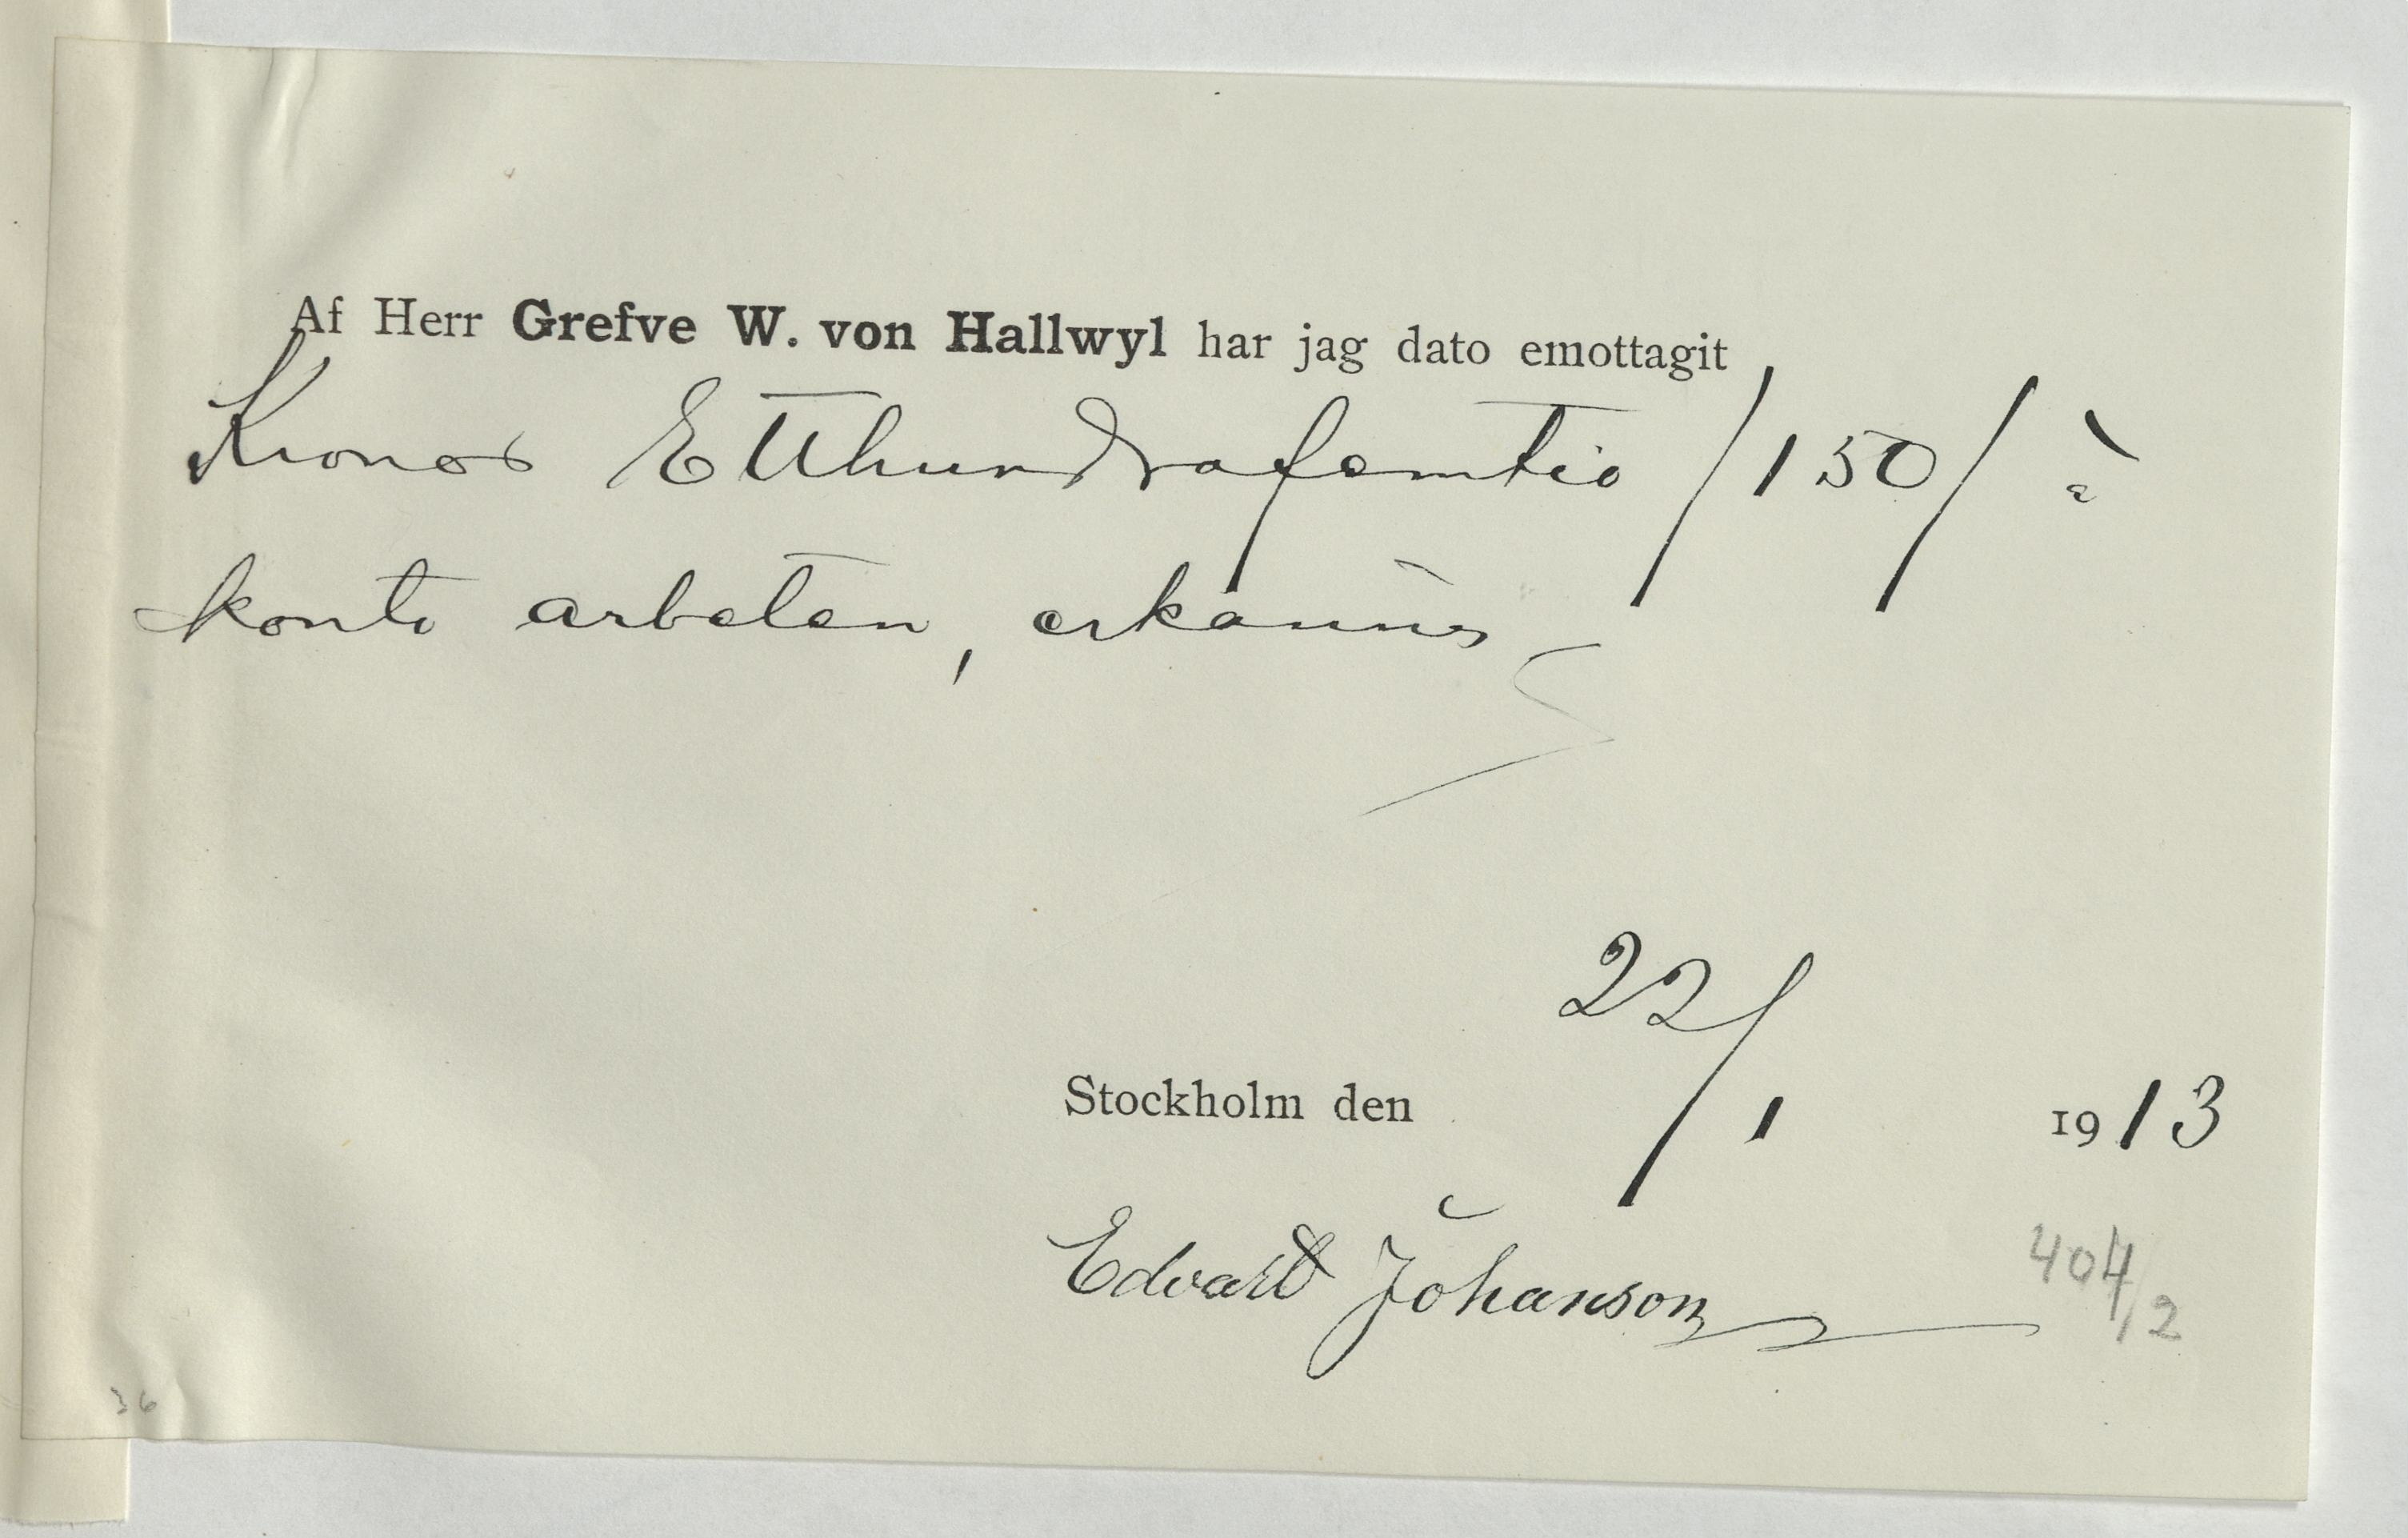 Af Herr Grefve W. von Hallwyl har jag dato emottagit
Kronor Etthundrafemtio /150/ à
konto arbeten, erkännes
22/1
Stockholm den 1913
Edvard Johanson
404/2
36